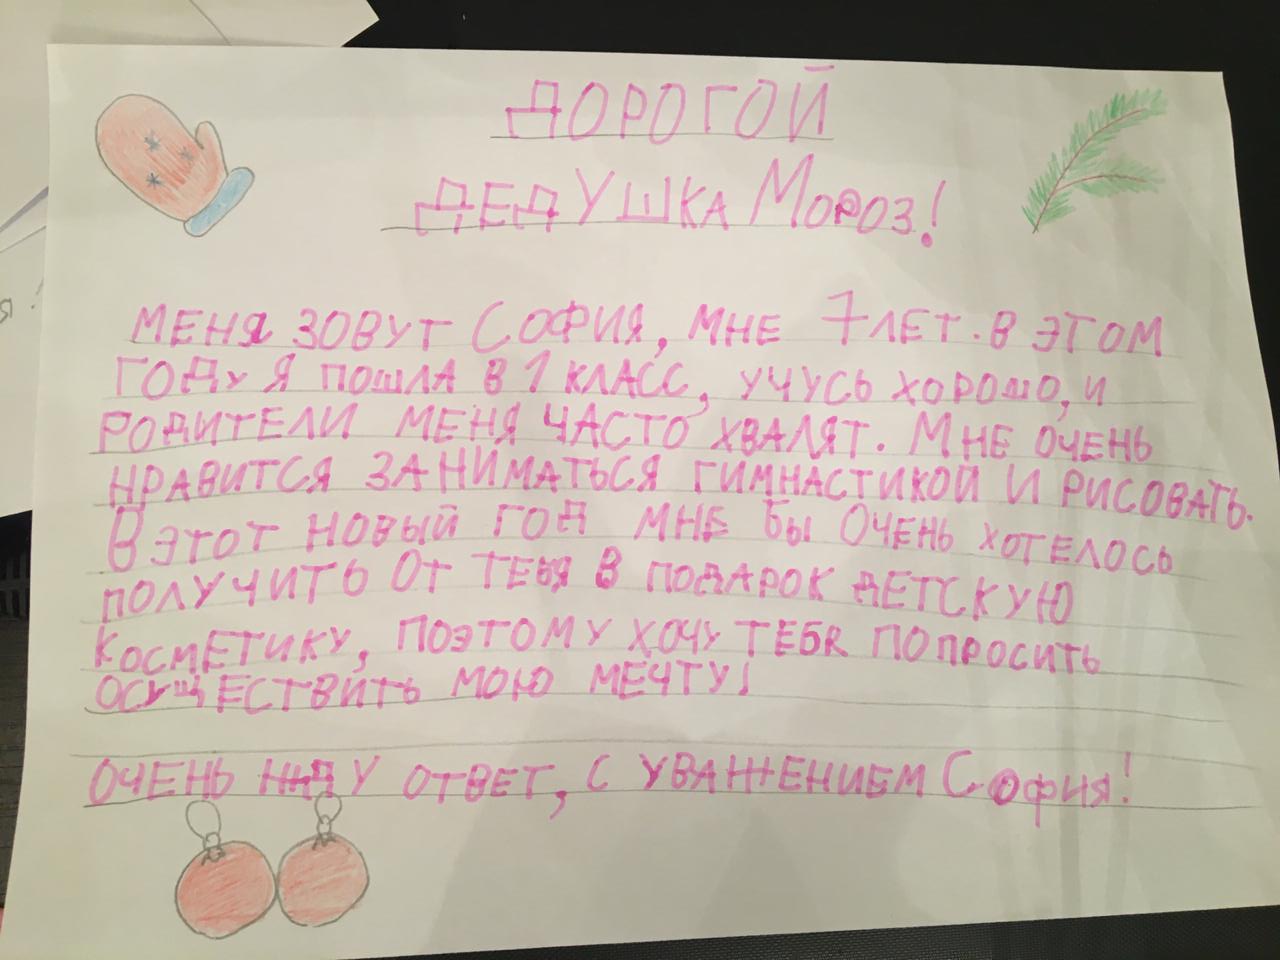 ДОРОГОЙ
ДЕДУШКА МОРОЗ!
МЕНЯ ЗОВУТ СОФИЯ, МНЕ 7 ЛЕТ. В ЭТОМ
ГОДУ Я ПОШЛА В 1 КЛАСС, УЧУСЬ ХОРОШО, И
РОДИТЕЛИ МЕНЯ ЧАСТО ХВАЛЯТ. МНЕ ОЧЕНЬ
НРАВИТСЯ ЗАНИМАТЬСЯ ГИМНАСТИКОЙ И РИСОВАТЬ.
В ЭТОТ НОВЫЙ ГОД МНЕ БЫ ОЧЕНЬ ХОТЕЛОСЬ
ПОЛУЧИТЬ ОТ ТЕБЯ В ПОДАРОК ДЕТСКУЮ
КОСМЕТИКУ, ПОЭТОМУ ХОЧУ ТЕБЯ ПОПРОСИТЬ
ОСУЩЕСТВИТЬ МОЮ МЕЧТУ!
ОЧЕНЬ ЖДУ ОТВЕТ, С УВАЖЕНИЕМ СОФИЯ!